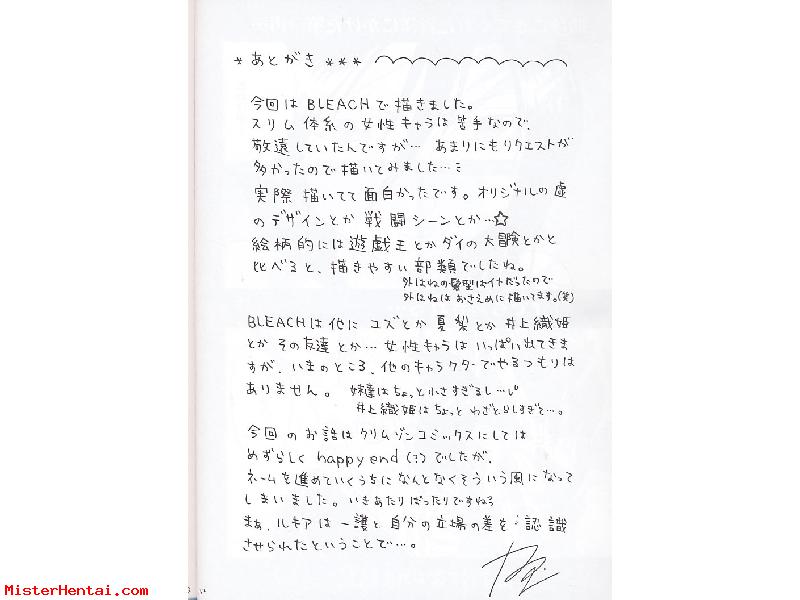 * あとがき ***
今回はBLEACHで描きました。
スリム体系の女性キャラは苦手なので、
敬遠していたんですが… あまりにもリクエストが
多かったので描いてみました…
実際描いてて面白かったです。オリジナルの虚
のデザインとか戦闘シーンとか…☆
絵柄的には遊戯王とかダイの大冒険とかと
比べると、描きやすい部類でしたね。
外はねの髪型はイヤだったので
外はねはおさえめに描いてます。(笑)
BLEACHは他にユズとか夏梨とか井上織姫
とかその友達とか…女性キャラはいっぱい出てきま
すが、いまのところ、他のキャラクターでやるつもりは
ありません。 妹達はちょっと小さすぎるし…
井上織姫はちょっとわざとらしすぎて…。
今回のお話はクリムゾンコミックスにしては
めずらしく happy end (?) でしたが、
ネームを進めていくうちになんとなくそういう風になって
しまいました。いきあたりばったりですね
まあ、ルキアは一護と自分の立場の差を 認識
させられたということで…。
MisterHentai.com